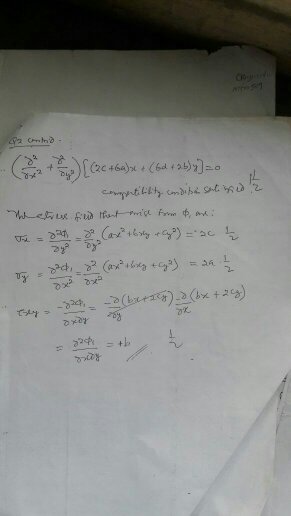 Q2 contd.
(∂²/∂x² + ∂²/∂y²) [(2c+6a)x + (6d+2b)y] = 0
compatibility condition satisfied 1/2
The stress field that arise from ϕ₁ are:
σx = ∂²ϕ₁/∂y² = ∂²/∂y² (ax²+bxy+cy²) = 2c 1/2
σy = ∂²ϕ₁/∂x² = ∂²/∂x² (ax²+bxy+cy²) = 2a 1/2
τxy = -∂²ϕ₁/∂x∂y = -∂/∂y (bx+2cy) -∂/∂x (bx+2cy)
= ∂²ϕ₁/∂x∂y = +b 1/2